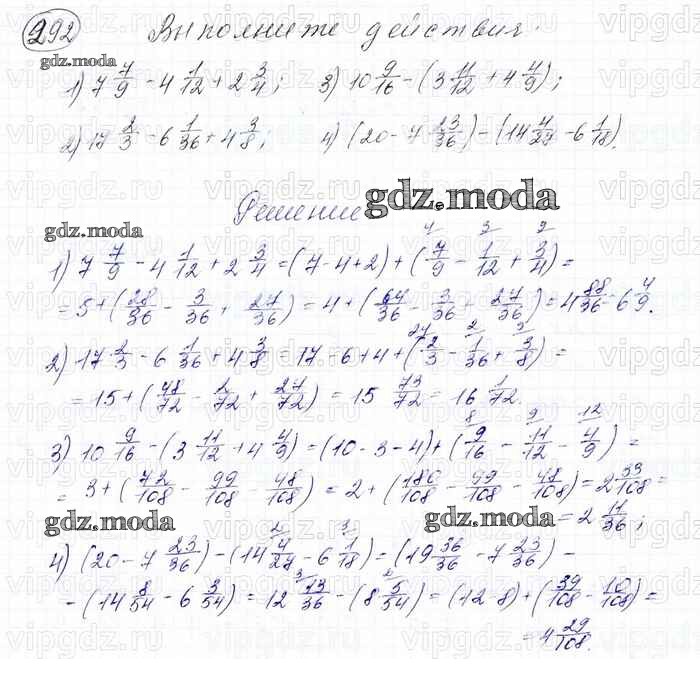 292 Выполните действия.
gdz.moda
1) 7 7/9 - 4 1/12 + 2 3/4; 3) 10 9/16 - (3 11/12 + 4 4/9);
2) 17 2/3 - 6 1/36 + 4 3/8; 4) (20 - 7 23/36) - (14 4/27 - 6 1/18).
Решение gdz.moda
gdz.moda
4 3 2
1) 7 7/9 - 4 1/12 + 2 3/4 = (7-4+2) + (7/9 - 1/12 + 3/4) =
= 5 + (28/36 - 3/36 + 27/36) = 4 + (64/36 - 3/36 + 27/36) = 4 88/36 = 6 4/9.
24 2
2) 17 2/3 - 6 1/36 + 4 3/8 = 17 - 6 + 4 + (2/3 - 1/36 + 3/8) =
= 15 + (48/72 - 2/72 + 27/72) = 15 73/72 = 16 1/72.
8 9 12
3) 10 9/16 - (3 11/12 + 4 4/9) = (10-3-4) + (9/16 - 11/12 - 4/9) =
= 3 + (72/108 - 99/108 - 48/108) = 2 + (180/108 - 99/108 - 48/108) = 2 33/108 =
gdz.moda gdz.moda = 2 11/36;
2 3
4) (20 - 7 23/36) - (14 4/27 - 6 1/18) = (19 36/36 - 7 23/36) -
- (14 8/54 - 6 3/54) = 12 13/36 - (8 5/54) = (12-8) + (39/108 - 10/108) =
= 4 29/108.
vipgdz.ru